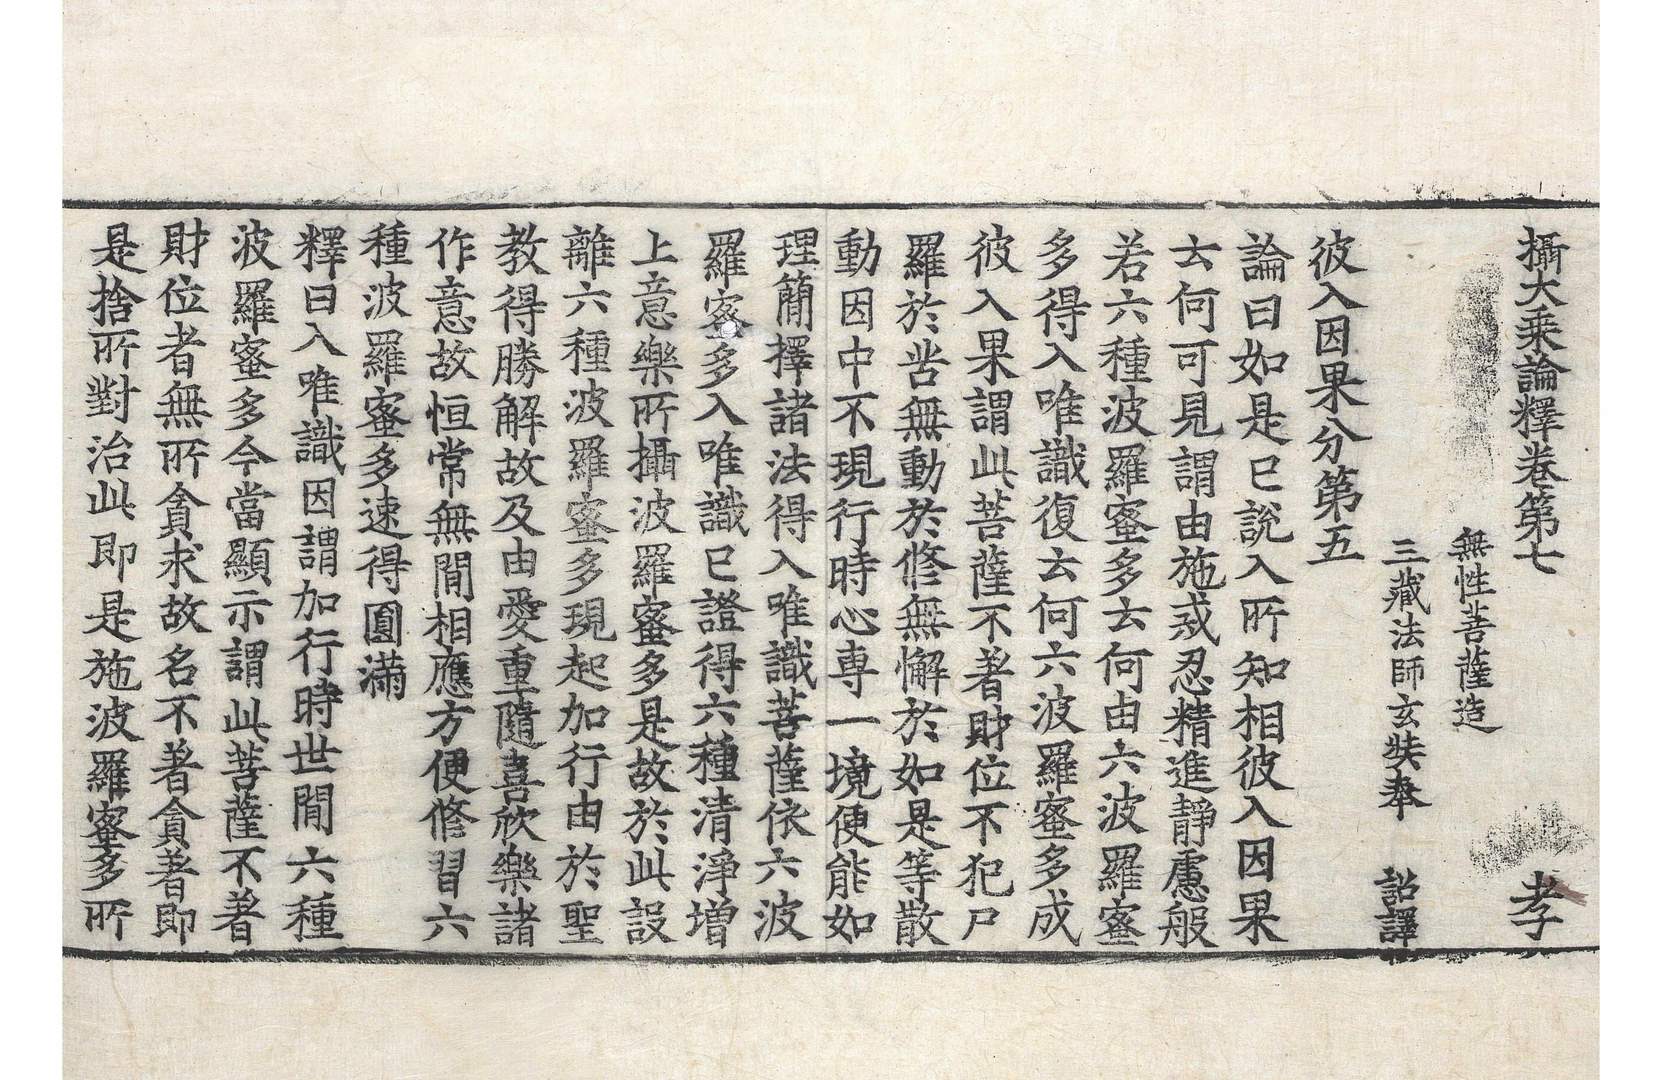 攝大乘論釋卷第七 孝
無性菩薩造
三藏法師玄奘奉 詔譯
彼入因果分第五
論曰如是已說入所知相彼入因果
云何可見謂由施戒忍精進靜慮般
若六種波羅蜜多云何由六波羅蜜
多得入唯識復云何六波羅蜜多成
彼入果謂此菩薩不著財位不犯尸
羅於苦無動於修無懈於如是等散
動因中不現行時心專一境便能如
理簡擇諸法得入唯識菩薩依六波
羅蜜多入唯識已證得六種清淨增
上意樂所攝波羅蜜多是故於此設
離六種波羅蜜多現起加行由於聖
教得勝解故及由愛重隨喜欣樂諸
作意故恒常無間相應方便修習六
種波羅蜜多速得圓滿
釋曰入唯識因謂加行時世間六種
波羅蜜多今當顯示謂此菩薩不著
財位者無所貪求故名不著貪著即
是捨所對治此即是施波羅蜜多所